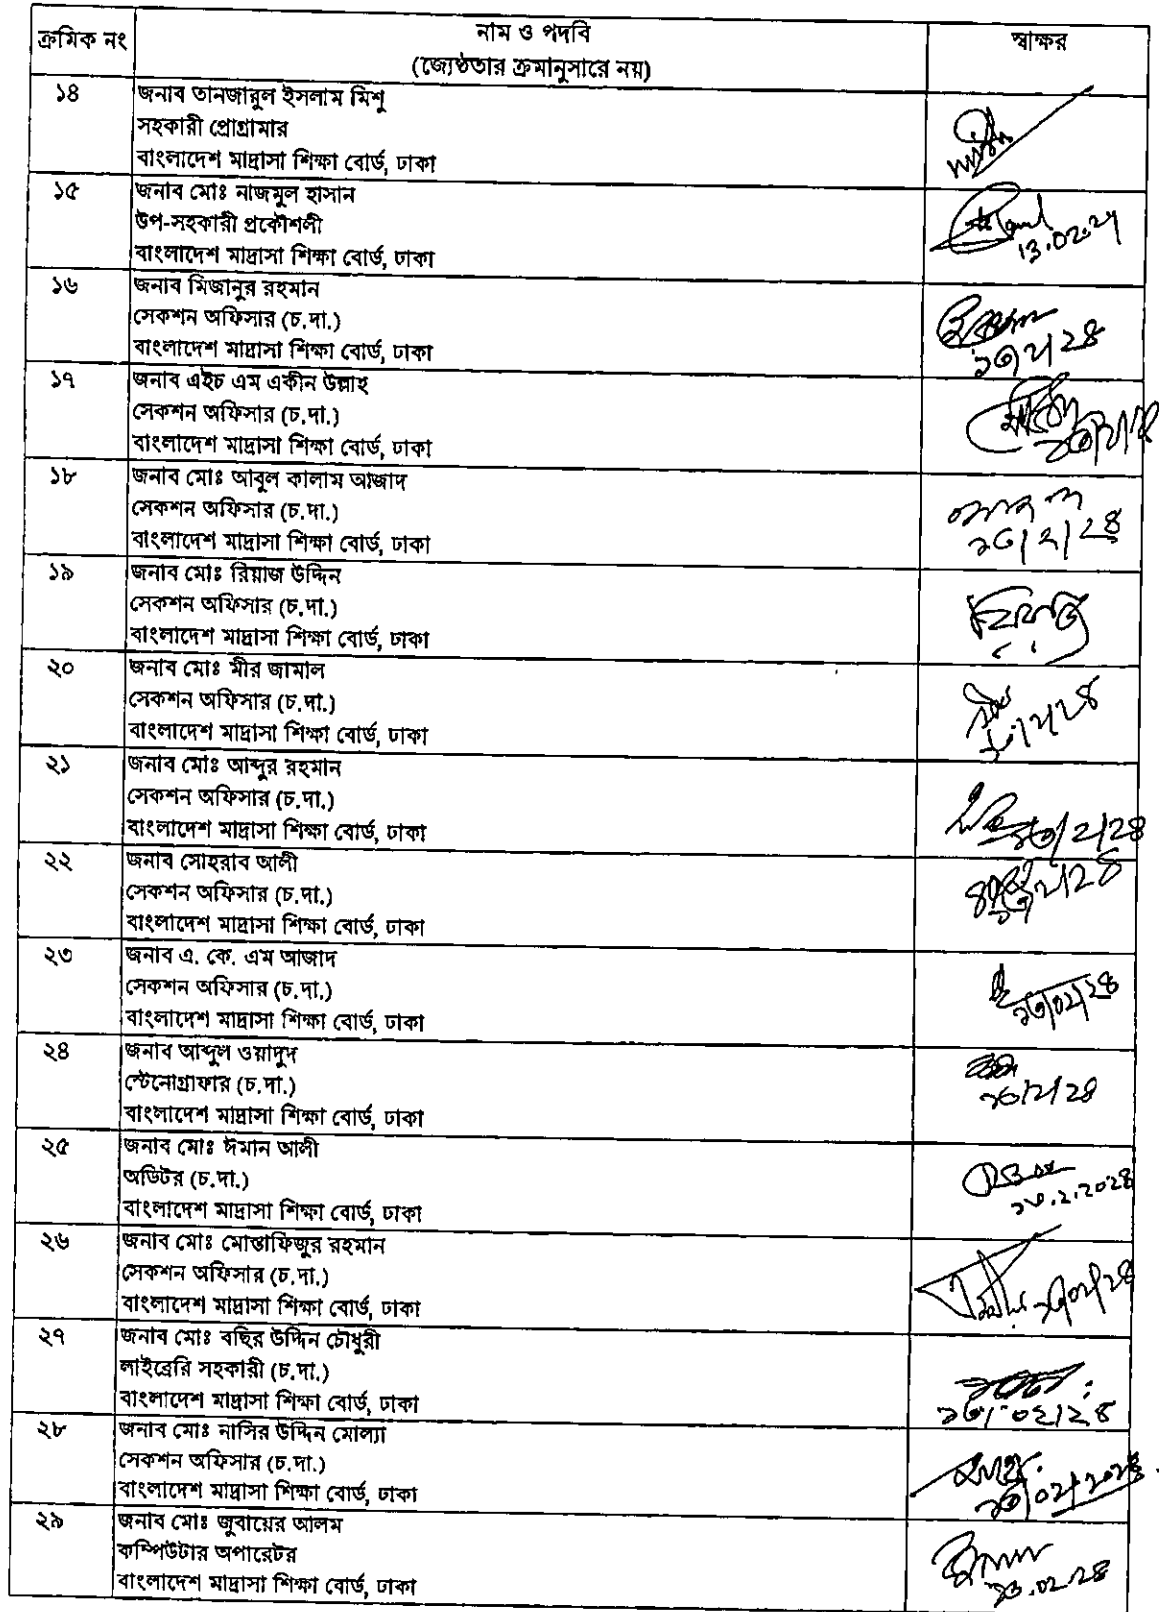 ক্রমিক নং
নাম ও পদবি
(জ্যেষ্ঠতার ক্রমানুসারে নয়)
স্বাক্ষর
১৪
জনাব তানজারুল ইসলাম মিশু
সহকারী প্রোগ্রামার
বাংলাদেশ মাদ্রাসা শিক্ষা বোর্ড, ঢাকা
১৫
জনাব মোঃ নাজমুল হাসান
উপ-সহকারী প্রকৌশলী
বাংলাদেশ মাদ্রাসা শিক্ষা বোর্ড, ঢাকা
13.02.24
১৬
জনাব মিজানুর রহমান
সেকশন অফিসার (চ.দা.)
বাংলাদেশ মাদ্রাসা শিক্ষা বোর্ড, ঢাকা
১৩/২/২৪
১৭
জনাব এইচ এম একীন উল্লাহ
সেকশন অফিসার (চ.দা.)
বাংলাদেশ মাদ্রাসা শিক্ষা বোর্ড, ঢাকা
১৮
জনাব মোঃ আবুল কালাম আজাদ
সেকশন অফিসার (চ.দা.)
বাংলাদেশ মাদ্রাসা শিক্ষা বোর্ড, ঢাকা
১৩/২/২৪
১৯
জনাব মোঃ রিয়াজ উদ্দিন
সেকশন অফিসার (চ.দা.)
বাংলাদেশ মাদ্রাসা শিক্ষা বোর্ড, ঢাকা
২০
জনাব মোঃ মীর জামাল
সেকশন অফিসার (চ.দা.)
বাংলাদেশ মাদ্রাসা শিক্ষা বোর্ড, ঢাকা
২১
জনাব মোঃ আব্দুর রহমান
সেকশন অফিসার (চ.দা.)
বাংলাদেশ মাদ্রাসা শিক্ষা বোর্ড, ঢাকা
১৩/২/২৪
২২
জনাব সোহরাব আলী
সেকশন অফিসার (চ.দা.)
বাংলাদেশ মাদ্রাসা শিক্ষা বোর্ড, ঢাকা
২৩
জনাব এ. কে. এম আজাদ
সেকশন অফিসার (চ.দা.)
বাংলাদেশ মাদ্রাসা শিক্ষা বোর্ড, ঢাকা
১৩/০২/২৪
২৪
জনাব আব্দুল ওয়াদুদ
স্টেনোগ্রাফার (চ.দা.)
বাংলাদেশ মাদ্রাসা শিক্ষা বোর্ড, ঢাকা
১৩/২/২৪
২৫
জনাব মোঃ ঈমান আলী
অডিটর (চ.দা.)
বাংলাদেশ মাদ্রাসা শিক্ষা বোর্ড, ঢাকা
১৩.২.২০২৪
২৬
জনাব মোঃ মোস্তাফিজুর রহমান
সেকশন অফিসার (চ.দা.)
বাংলাদেশ মাদ্রাসা শিক্ষা বোর্ড, ঢাকা
১৩/০২/২৪
২৭
জনাব মোঃ বছির উদ্দিন চৌধুরী
লাইব্রেরি সহকারী (চ.দা.)
বাংলাদেশ মাদ্রাসা শিক্ষা বোর্ড, ঢাকা
১৩/০২/২৪
২৮
জনাব মোঃ নাসির উদ্দিন মোল্যা
সেকশন অফিসার (চ.দা.)
বাংলাদেশ মাদ্রাসা শিক্ষা বোর্ড, ঢাকা
১৩/০২/২০২৪
২৯
জনাব মোঃ জুবায়ের আলম
কম্পিউটার অপারেটর
বাংলাদেশ মাদ্রাসা শিক্ষা বোর্ড, ঢাকা
১৩.০২.২৪